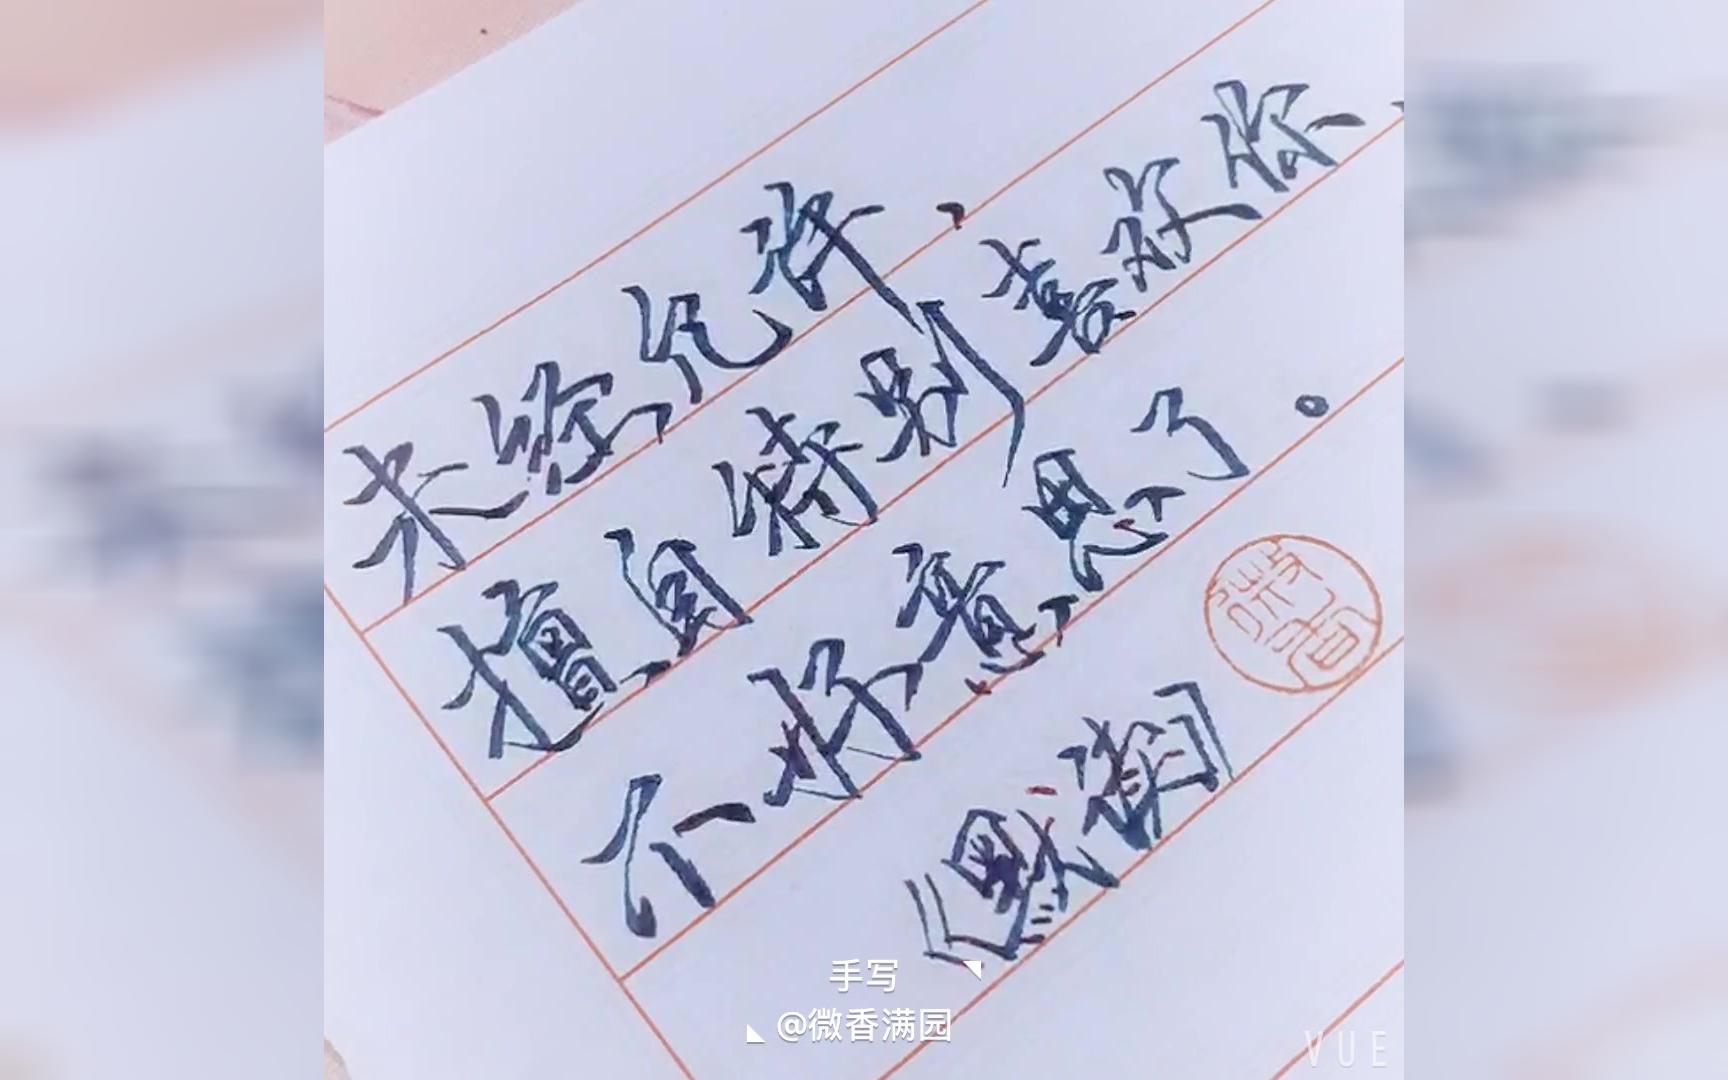 未经允许，
擅自特别喜欢你，
不好意思了。
《默读》
手写
@微香满园
VUE